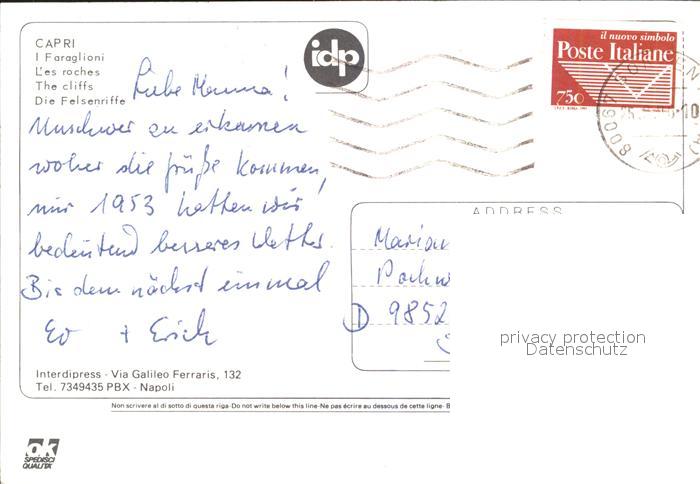 CAPRI
I Faraglioni
L'es roches
The cliffs
Die Felsenriffe
idp
il nuovo simbolo
Poste Italiane
750
80067
Liebe Mamma!
Unschwer zu erkennen
woher die Grüße kommen,
nur 1953 hatten wir
bedeutend besseres Wetter.
Bis demnächst einmal
Ev + Erich
ADDRESS
Marian
Pachw
D 9852
privacy protection
Datenschutz
Interdipress - Via Galileo Ferraris, 132
Tel. 7349435 PBX - Napoli
Non scrivere al di sotto di questa riga-Do not write below this line-Ne pas écrire au dessous de cette ligne- B
ok
SPEDISCI
QUALITA'